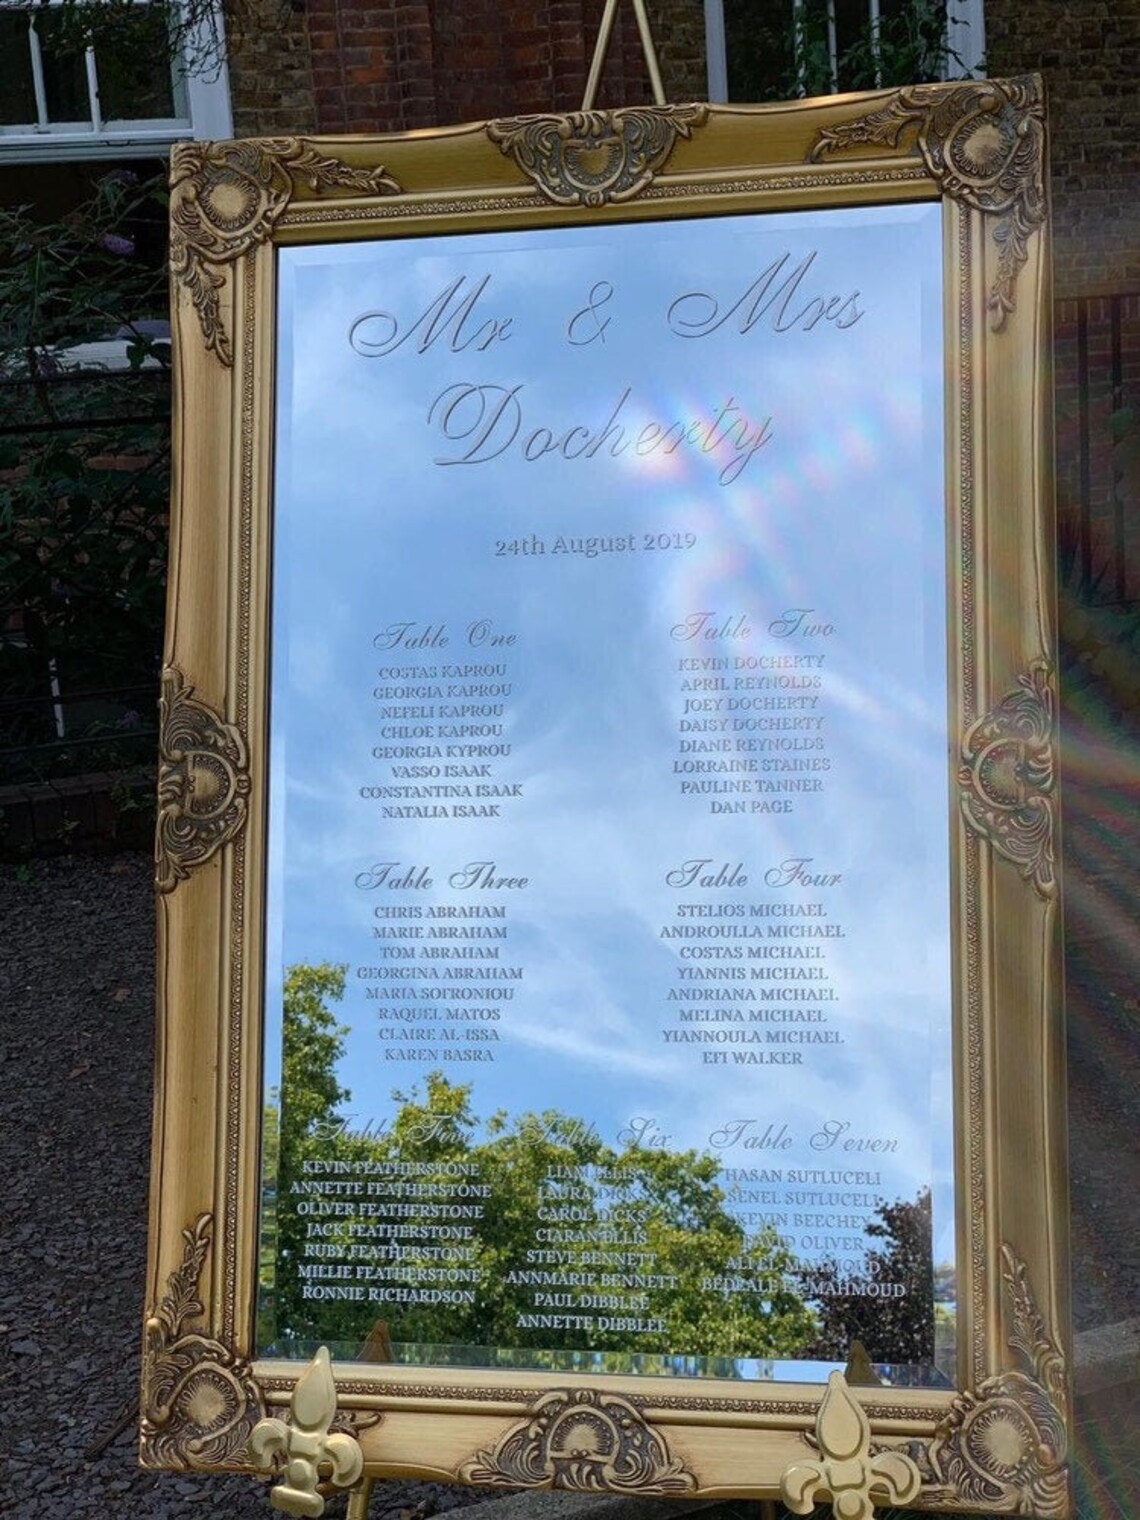 Mr & Mrs
Docherty
24th August 2019
Table One
COSTAS KAPROU
GEORGIA KAPROU
NEFELI KAPROU
CHLOE KAPROU
GEORGIA KYPROU
VASSO ISAAK
CONSTANTINA ISAAK
NATALIA ISAAK
Table Two
KEVIN DOCHERTY
APRIL REYNOLDS
JOEY DOCHERTY
DAISY DOCHERTY
DIANE REYNOLDS
LORRAINE STAINES
PAULINE TANNER
DAN PAGE
Table Three
CHRIS ABRAHAM
MARIE ABRAHAM
TOM ABRAHAM
GEORGINA ABRAHAM
MARIA SOFRONIOU
RAQUEL MATOS
CLAIRE AL-ISSA
KAREN BASRA
Table Four
STELIOS MICHAEL
ANDROULLA MICHAEL
COSTAS MICHAEL
YIANNIS MICHAEL
ANDRIANA MICHAEL
MELINA MICHAEL
YIANNOULA MICHAEL
EFI WALKER
Table Five
KEVIN FEATHERSTONE
ANNETTE FEATHERSTONE
OLIVER FEATHERSTONE
JACK FEATHERSTONE
RUBY FEATHERSTONE
MILLIE FEATHERSTONE
RONNIE RICHARDSON
Table Six
LIAM ELLIS
LAURA DICKS
CAROL DICKS
CIARAN ELLIS
STEVE BENNETT
ANNMARIE BENNETT
PAUL DIBBLEE
ANNETTE DIBBLEE
Table Seven
HASAN SUTLUCELI
SENEL SUTLUCELI
KEVIN BEECHEY
DAVID OLIVER
ALI EL-MAHMOUD
BEDEALE EL-MAHMOUD